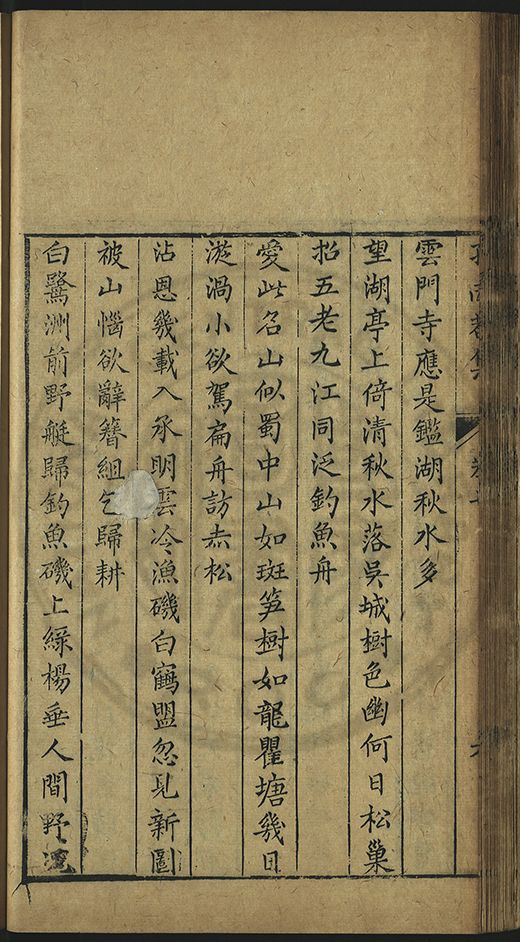 雲門寺應是鑑湖秋水多
望湖亭上倚清秋水落吳城樹色幽何日松巢
招五老九江同泛釣魚舟
愛此名山似蜀中山如斑笋樹如龍瞿塘幾日
漩渦小欲駕扁舟訪赤松
沾恩幾載入承明雲冷漁磯白鶴盟忽見新圖
被山惱欲辭簪組乞歸耕
白鷺洲前野艇歸釣魚磯上綠楊垂人間野